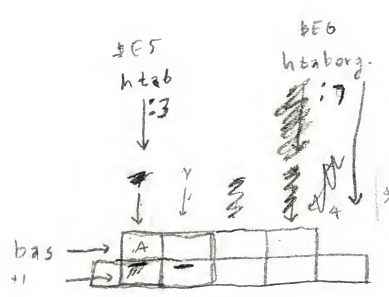 $E5
htab
:3
$E6
htaborg.
:7
4
bas
A
+1